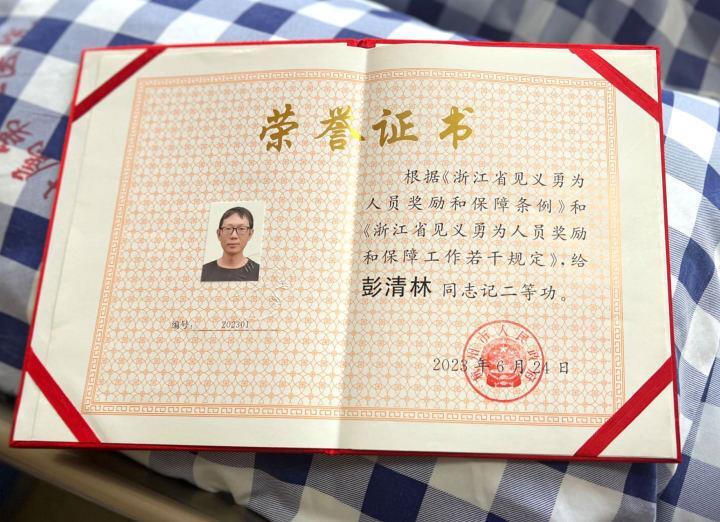 荣誉证书
编号： 202301
根据《浙江省见义勇为
人员奖励和保障条例》和
《浙江省见义勇为人员奖励
和保障工作若干规定》，给
彭清林 同志记二等功。
2023 年 6 月 24 日
杭州市人民政府